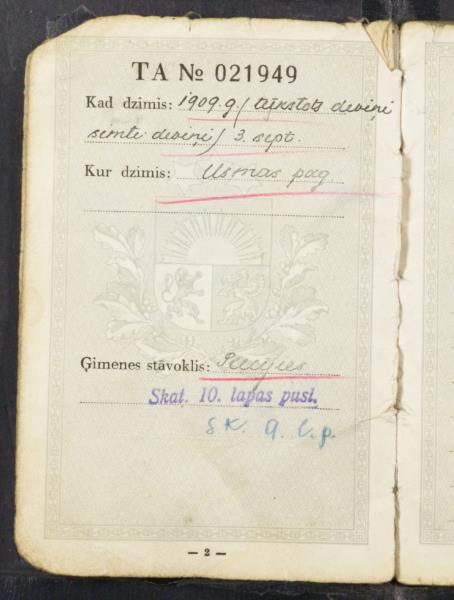 TA № 021949
Kad dzimis: 1909.g/ tūkstots deviņi
simti deviņi/ 3. sept.
Kur dzimis: Usmas pag
Ģimenes stāvoklis:
Skat. 10. lapas pusi.
sk. 9. l.p.
— 2 —